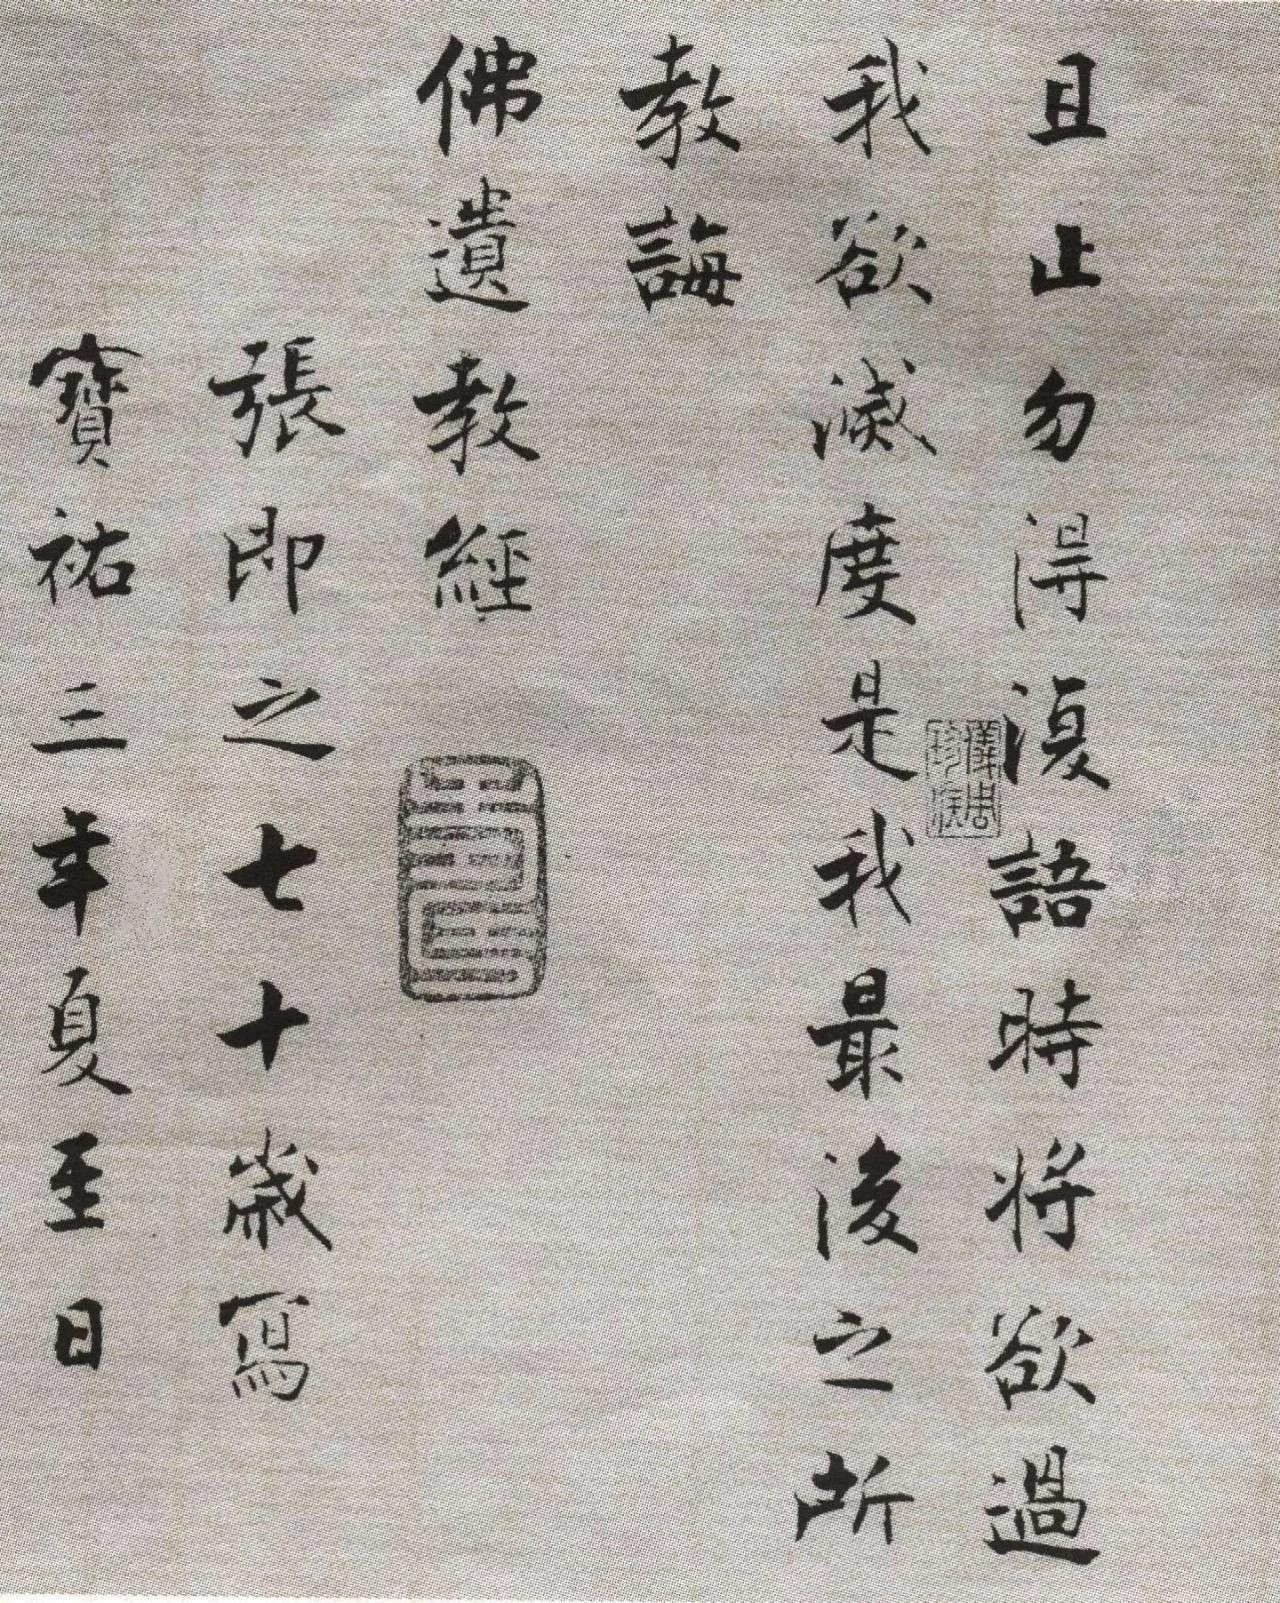 且止勿得復語時將欲過
我欲滅度是我最後之所
教誨
佛遺教經
張即之七十歲寫
寶祐三年夏至日